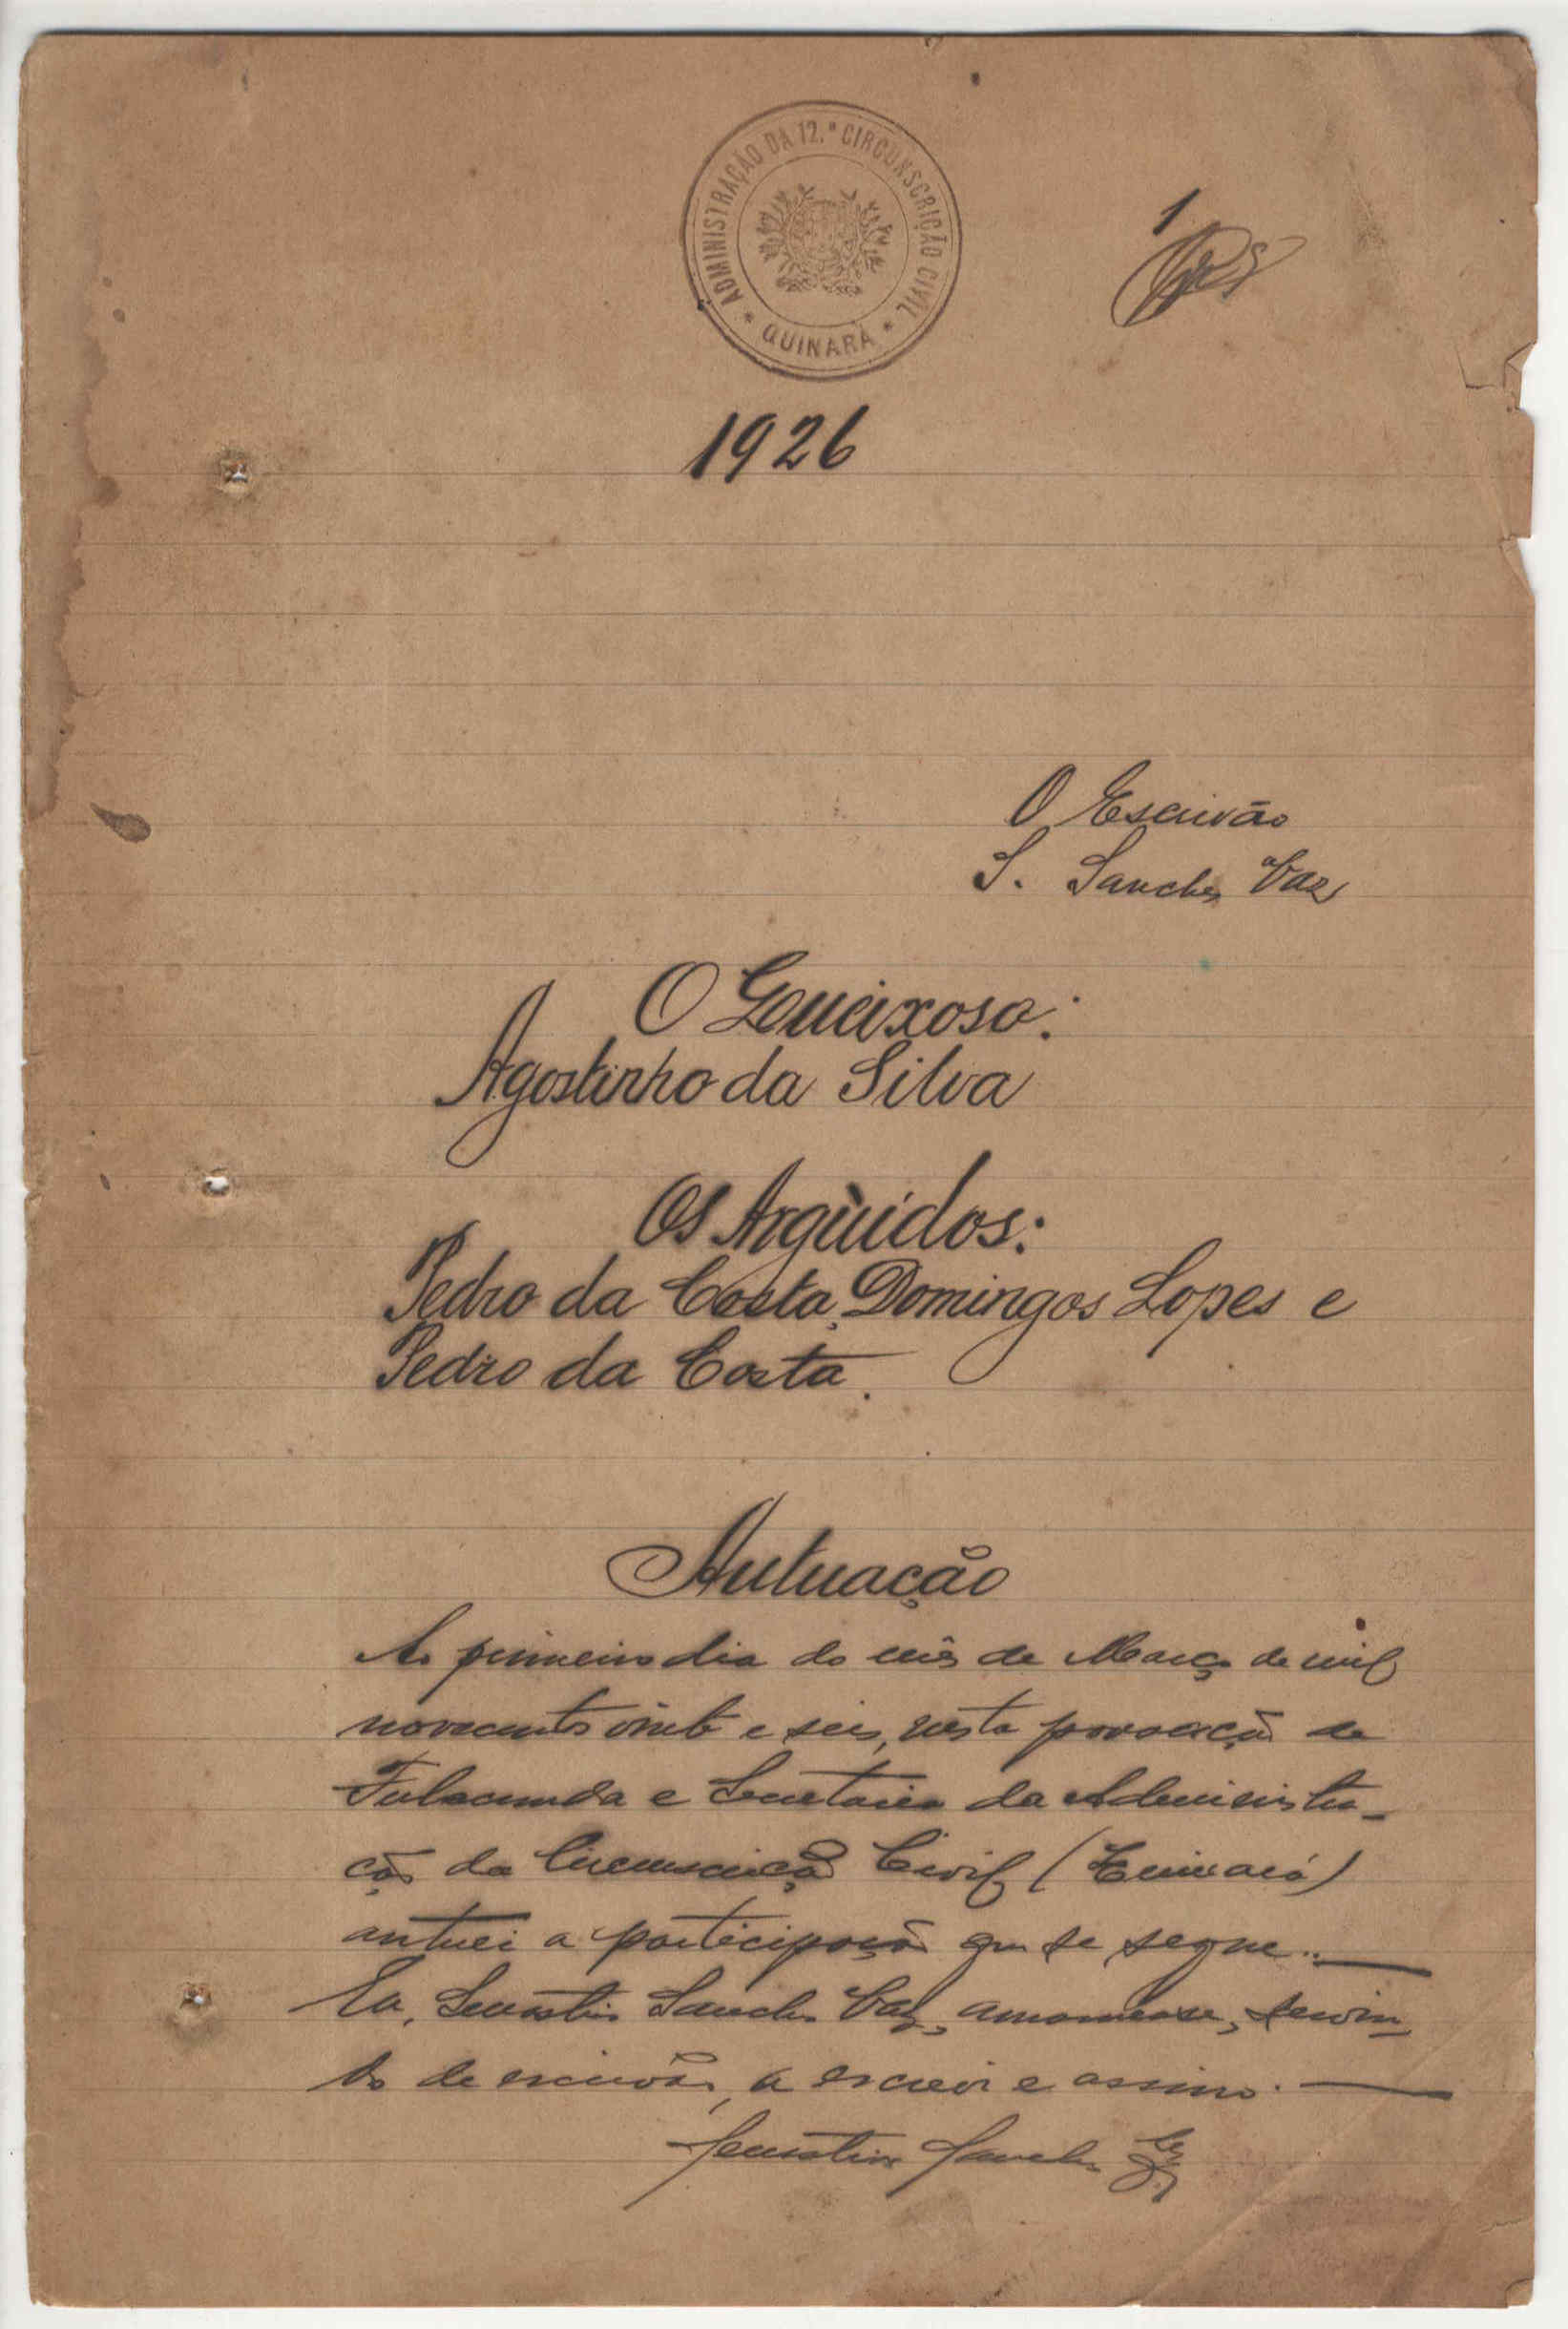 ADMINISTRAÇÃO DA 12.ª CIRCUNSCRIÇÃO CIVIL
* QUINARA *
1
1926
O Escrivão
S. Sanches Vaz
O Queixoso:
Agostinho da Silva
Os Argùidos:
Pedro da Costa, Domingos Lopes e
Pedro da Costa.
Autuação
Ao primeiro dia do mês de Março de mil
novecentos vinte e seis, nesta povoação de
Fulacunda e Secretaria da Administra-
ção da Circunscrição Civil (Quinará)
autuei a participação que se segue.
Eu, Sanches Vaz, amanuense, servin-
do de escrivão, o escrevi e assino.
Sanches